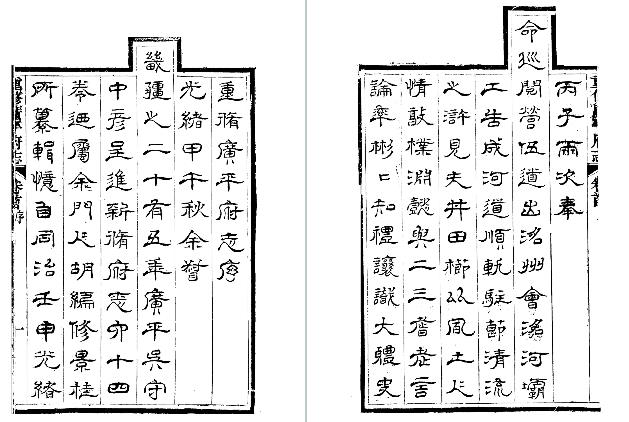 重脩廣平府志序
光緒甲午秋余督
畿疆之二十有五年廣平吳守
中彥呈進新脩府志六十四
卷廼屬余門人胡編修景桂
所纂輯憶自同治壬申光緒
重修廣平府志
卷首序
一
丙子兩次奉
命巡閱營伍道出洺州會滏河壩
工告成河道順軌駐節清流
之滸見夫井田櫛比風土人
情敦樸淵懿與二三耆老言
論率彬々知禮讓識大體史